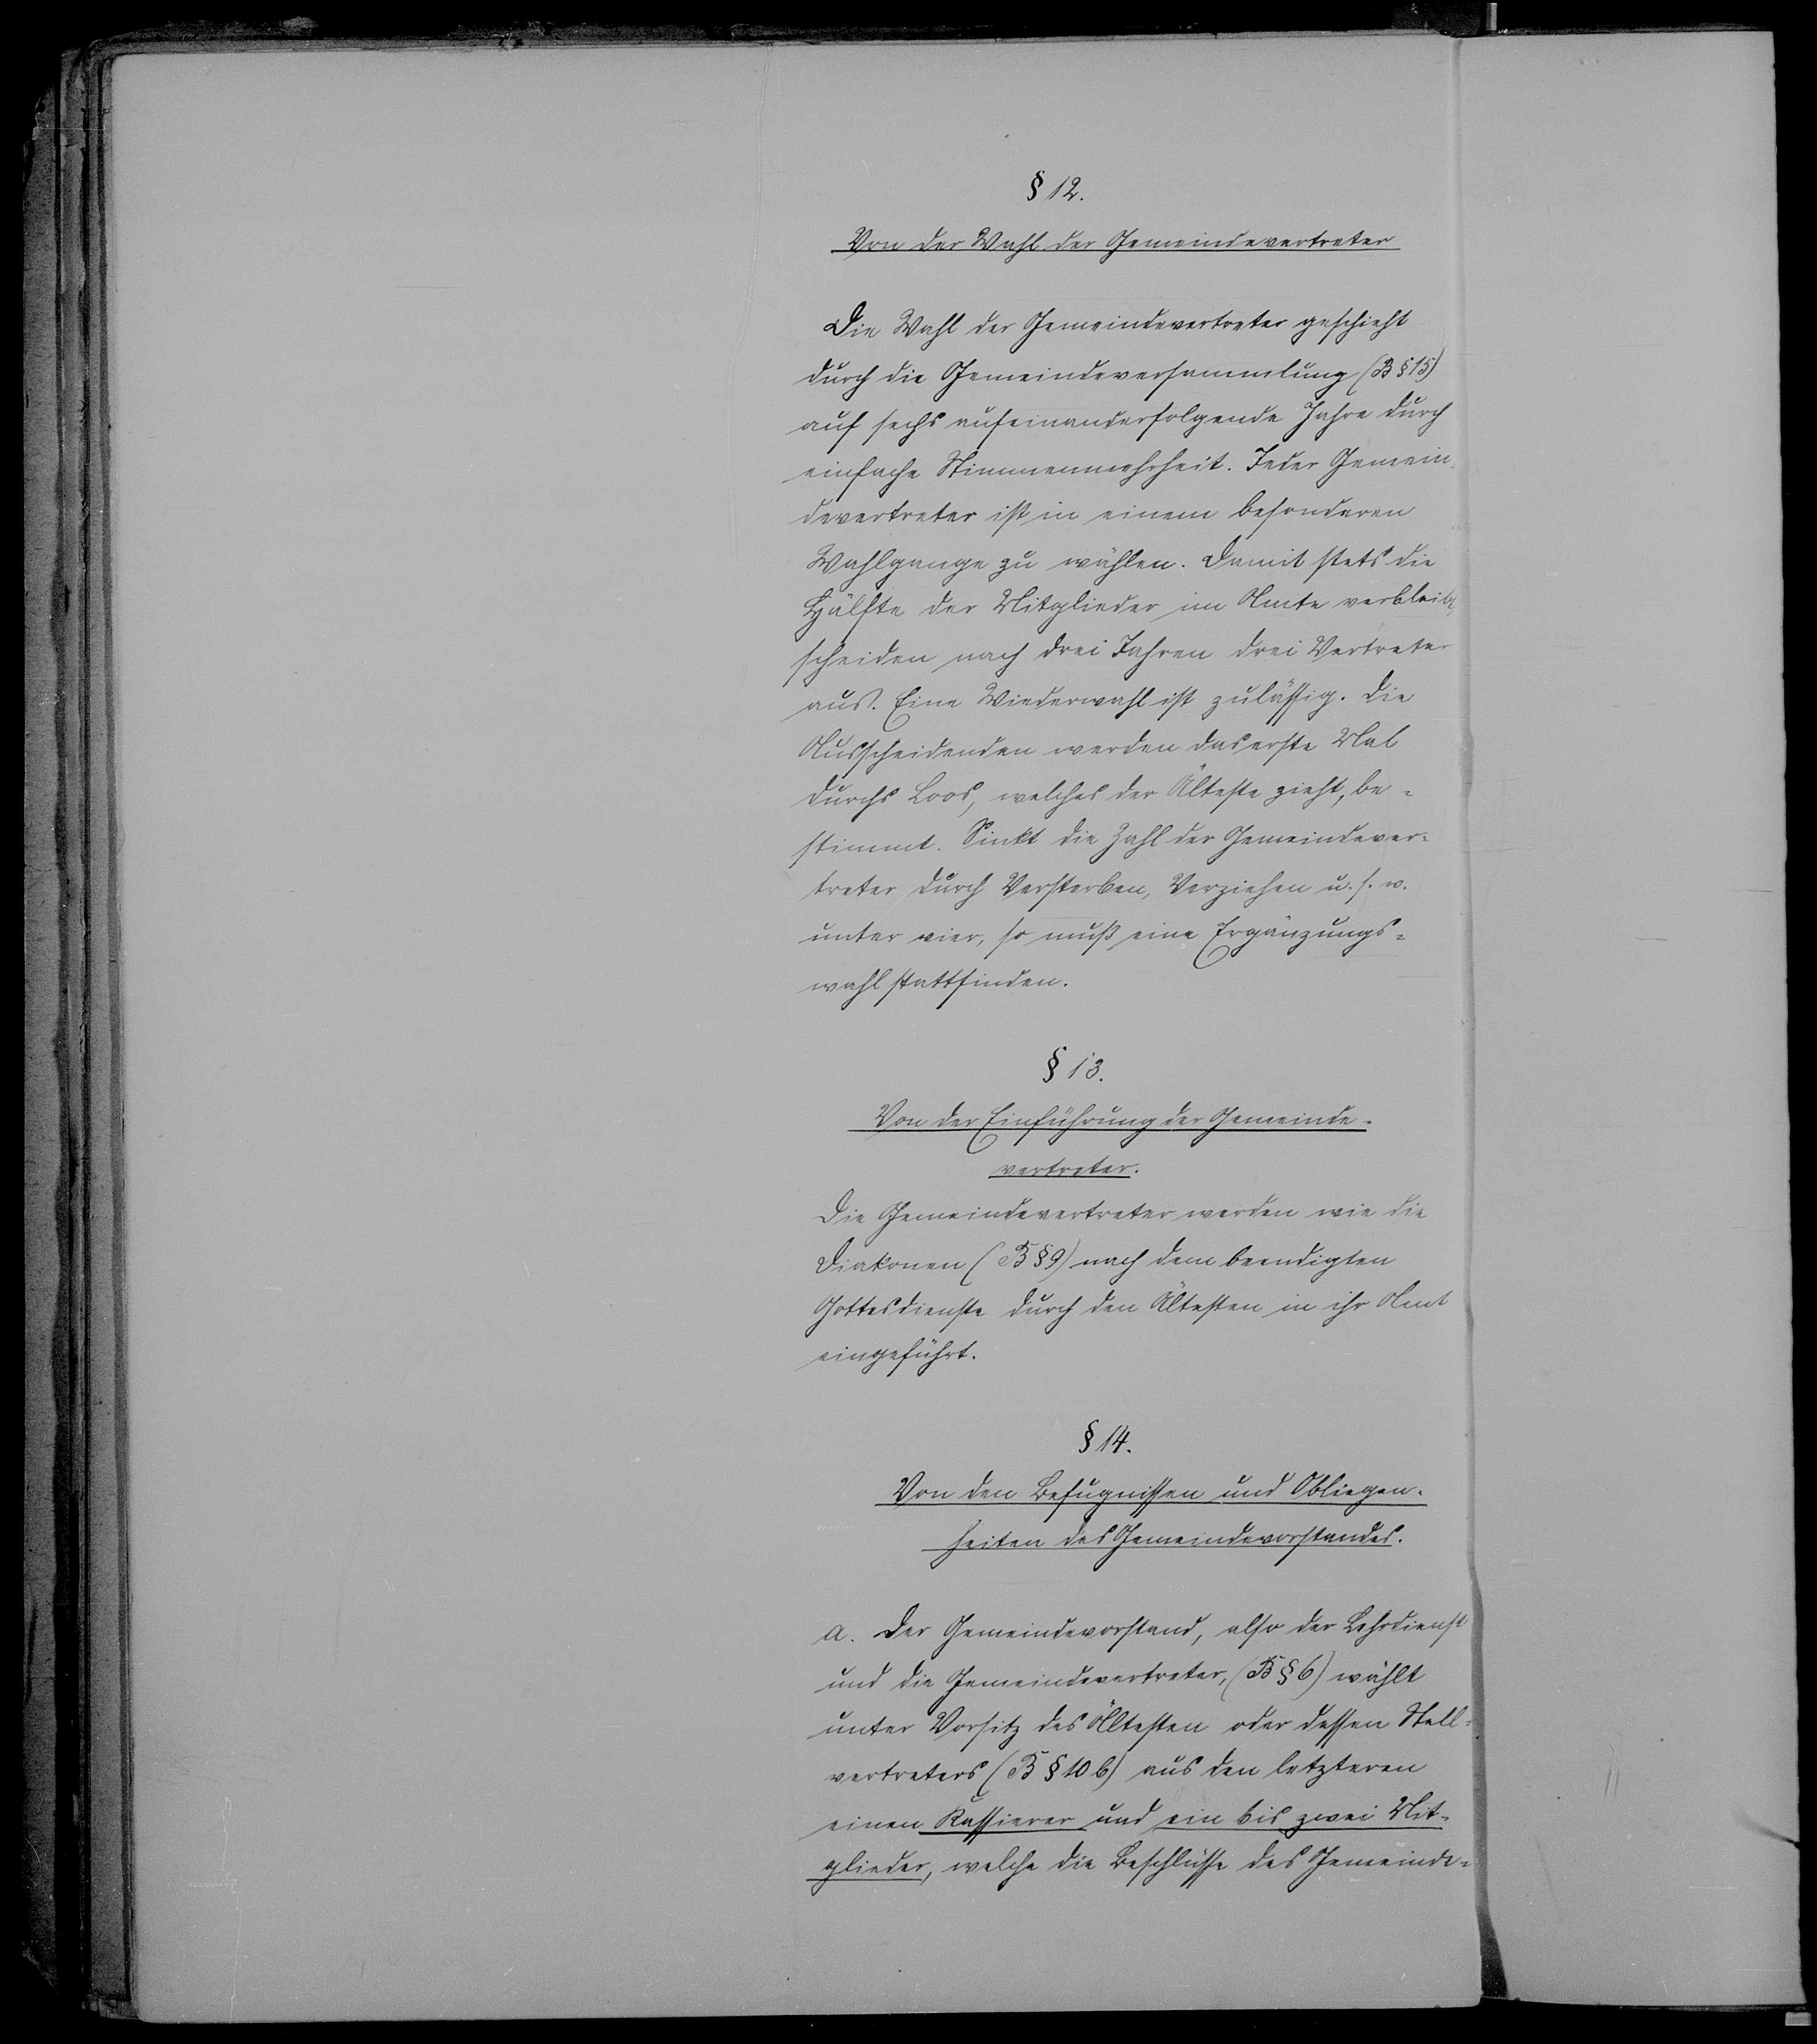 § 12.
Von der Wahl der Gemeindevertreter
Die Wahl der Gemeindevertreter geschieht
durch die Gemeindeversammlung (B § 15)
auf sechs aufeinanderfolgende Jahre durch
einfache Stimmenmehrheit. Jeder Gemein-
devertreter ist in einem besonderen
Wahlgange zu wählen. Damit stets die
Hälfte der Mitglieder im Amte verbleibt,
scheiden nach drei Jahren drei Vertreter
aus. Eine Wiederwahl ist zulässig. Die
Ausscheidenden werden das erste Mal
durchs Loos, welches der Älteste zieht, be-
stimmt. Sinkt die Zahl der Gemeindever-
treter durch Versterben, Verziehen u. s. w.
unter vier, so muß eine Ergänzungs-
wahl stattfinden.
§ 13.
Von der Einführung der Gemeinde-
vertreter.
Die Gemeindevertreter werden wie die
Diakonen (B § 9) nach dem beendigten
Gottesdienste durch den Ältesten in ihr Amt
eingeführt.
§ 14.
Von den Befugnissen und Obliegen-
heiten des Gemeindevorstandes.
a. Der Gemeindevorstand, also der Lehrdienst
und die Gemeindevertreter, (B § 6) wählt
unter Vorsitz des Ältesten oder dessen Stell-
vertreters (B § 10 b) aus den letzteren
einen Kassierer und ein bis zwei Mit-
glieder, welche die Beschlüsse des Gemeinde-